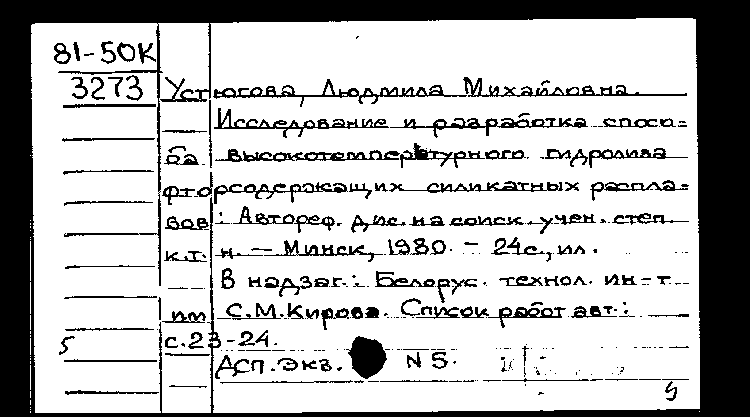 81-50К
3273 Устюгова, Людмила Михайловна.
Исследование и разработка спосо=
ба высокотемпературного гидролиза
фторсодержащих силикатных распла=
вов: Автореф. дис. на соиск. учен. степ.
к.т.н. — Минск, 1980. - 24с., ил.
В надзаг.: Белорус. технол. ин-т
им С.М.Кирова. Список работ авт.:
5 с.23-24.
Асп. Экз. N 5.
5